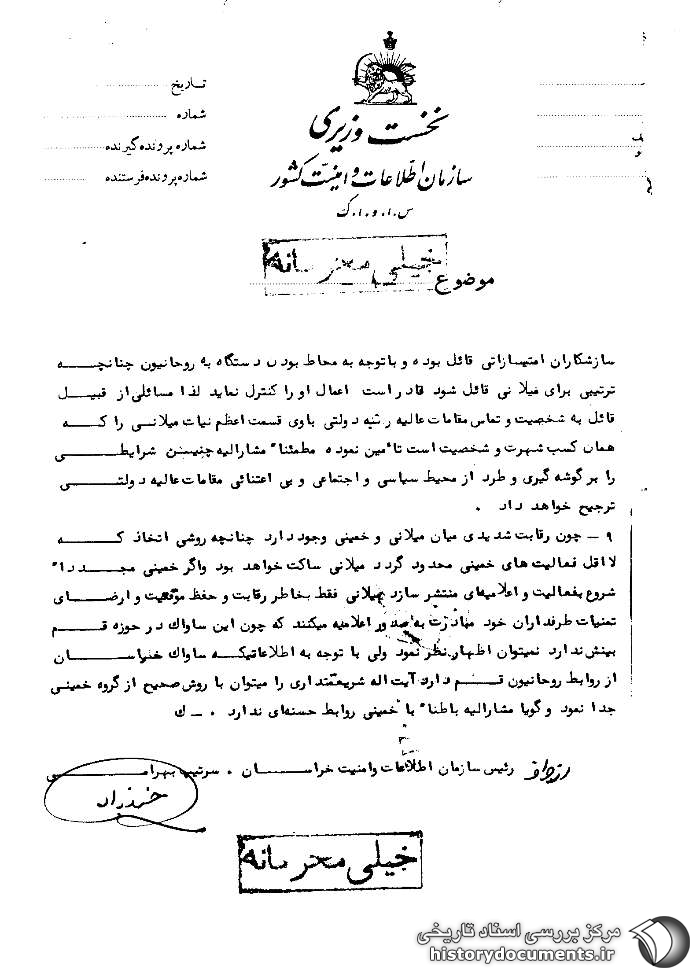 نخست وزیری
سازمان اطلاعات و امنیت کشور
س.ا.و.ا.ک
تاریخ
شماره
شماره پرونده گیرنده
شماره پرونده فرستنده
خیلی محرمانه
موضوع
سازشکاران امتیازاتی قائل بوده و باتوجه به محاط بودن دستگاه به روحانیون چنانچه
ترتیبی برای میلانی قائل شود قادر است اعمال او را کنترل نماید لذا مسائلی از قبیل
قائل به شخصیت و تماس مقامات عالیه رتبه دولتی باوی قسمت اعظم نیات میلانی را که
همان کسب شهرت و شخصیت است تامین نموده مطمئنا" مشارالیه چنین شرایطی
را بر گوشه گیری و طرد از محیط سیاسی و اجتماعی و بی اعتنائی مقامات عالیه دولتی
ترجیح خواهد داد .
۹ ـ چون رقابت شدیدی میان میلانی و خمینی وجود دارد چنانچه روشی اتخاذ که
لااقل فعالیت های خمینی محدود گردد میلانی ساکت خواهد بود واگر خمینی مجددا"
شروع بفعالیت و اعلامیه‌ای منتشر سازد میلانی فقط بخاطر رقابت و حفظ موقعیت و ارضای
تمنیات طرفداران خود مبادرت به صدور اعلامیه میکنند که چون این ساواک در حوزه قم
بینش ندارد نمیتوان اظهار نظر نمود ولی با توجه به اطلاعاتیکه ساواک خراسان
از روابط روحانیون قم دارد آیت اله شریعتمداری را میتوان با روش صحیح از گروه خمینی
جدا نمود و گویا مشارالیه باطنا" با خمینی روابط حسنه‌ای ندارد . ـ ک
رئیس سازمان اطلاعات وامنیت خراسان . سرتیپ بهرامی
خیلی محرمانه
مرکز بررسی اسناد تاریخی
historydocuments.ir